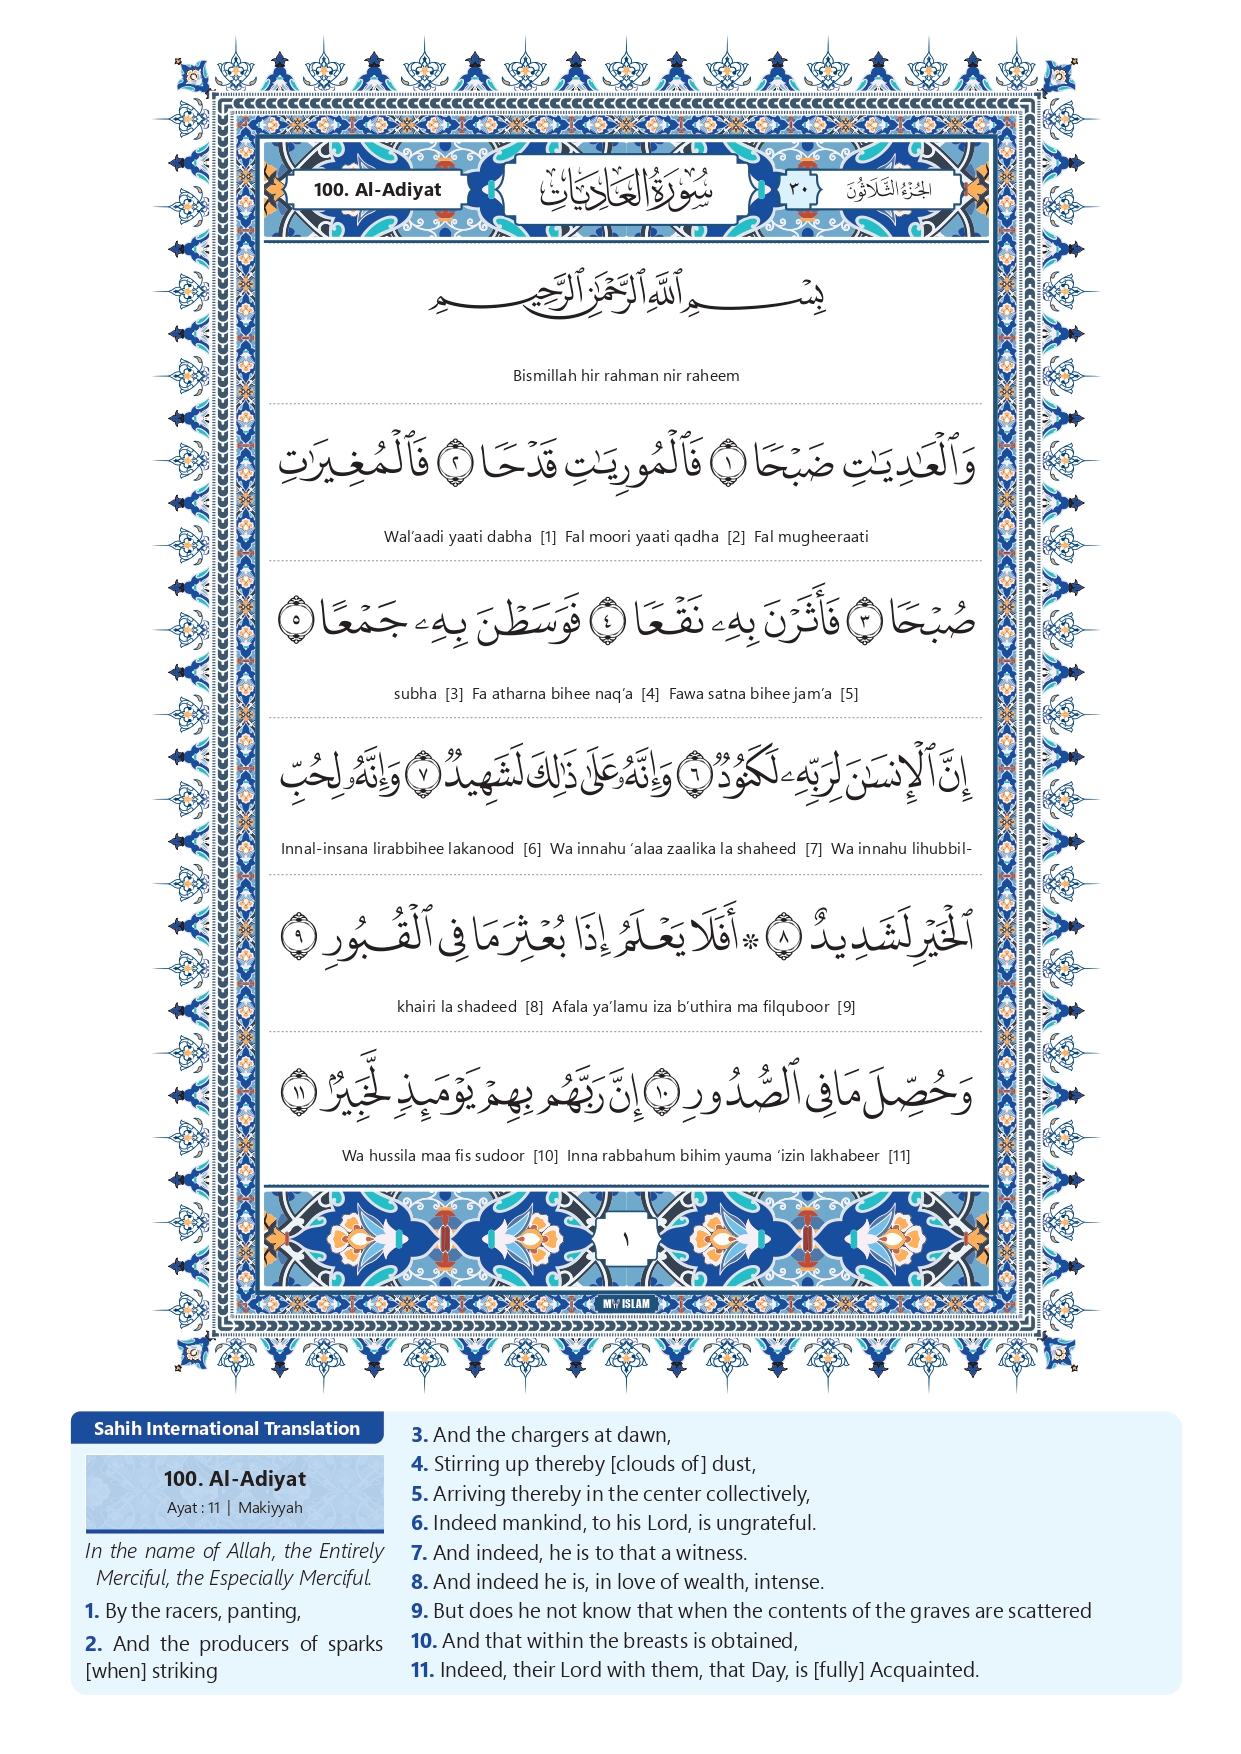 100. Al-Adiyat
سُورَةُ العَادِيَاتِ
٣٠
الجُزْءُ الثَّلَاثُونَ
بِسْمِ ٱللَّهِ ٱلرَّحْمَٰنِ ٱلرَّحِيمِ
Bismillah hir rahman nir raheem
وَٱلْعَٰدِيَٰتِ ضَبْحًا ١ فَٱلْمُورِيَٰتِ قَدْحًا ٢ فَٱلْمُغِيرَٰتِ
Wal’aadi yaati dabha [1] Fal moori yaati qadha [2] Fal mugheeraati
صُبْحًا ٣ فَأَثَرْنَ بِهِۦ نَقْعًا ٤ فَوَسَطْنَ بِهِۦ جَمْعًا ٥
subha [3] Fa atharna bihee naq’a [4] Fawa satna bihee jam’a [5]
إِنَّ ٱلْإِنسَٰنَ لِرَبِّهِۦ لَكَنُودٌ ٦ وَإِنَّهُۥ عَلَىٰ ذَٰلِكَ لَشَهِيدٌ ٧ وَإِنَّهُۥ لِحُبِّ
Innal-insana lirabbihee lakanood [6] Wa innahu ‘alaa zaalika la shaheed [7] Wa innahu lihubbil-
ٱلْخَيْرِ لَشَدِيدٌ ٨ * أَفَلَا يَعْلَمُ إِذَا بُعْثِرَ مَا فِى ٱلْقُبُورِ ٩
khairi la shadeed [8] Afala ya’lamu iza b’uthira ma filquboor [9]
وَحُصِّلَ مَا فِى ٱلصُّدُورِ ١٠ إِنَّ رَبَّهُم بِهِمْ يَوْمَئِذٍ لَّخَبِيرٌۢ ١١
Wa hussila maa fis sudoor [10] Inna rabbahum bihim yauma ‘izin lakhabeer [11]
١
MY ISLAM
Sahih International Translation
100. Al-Adiyat
Ayat : 11 | Makiyyah
In the name of Allah, the Entirely
Merciful, the Especially Merciful.
1. By the racers, panting,
2. And the producers of sparks
[when] striking
3. And the chargers at dawn,
4. Stirring up thereby [clouds of] dust,
5. Arriving thereby in the center collectively,
6. Indeed mankind, to his Lord, is ungrateful.
7. And indeed, he is to that a witness.
8. And indeed he is, in love of wealth, intense.
9. But does he not know that when the contents of the graves are scattered
10. And that within the breasts is obtained,
11. Indeed, their Lord with them, that Day, is [fully] Acquainted.